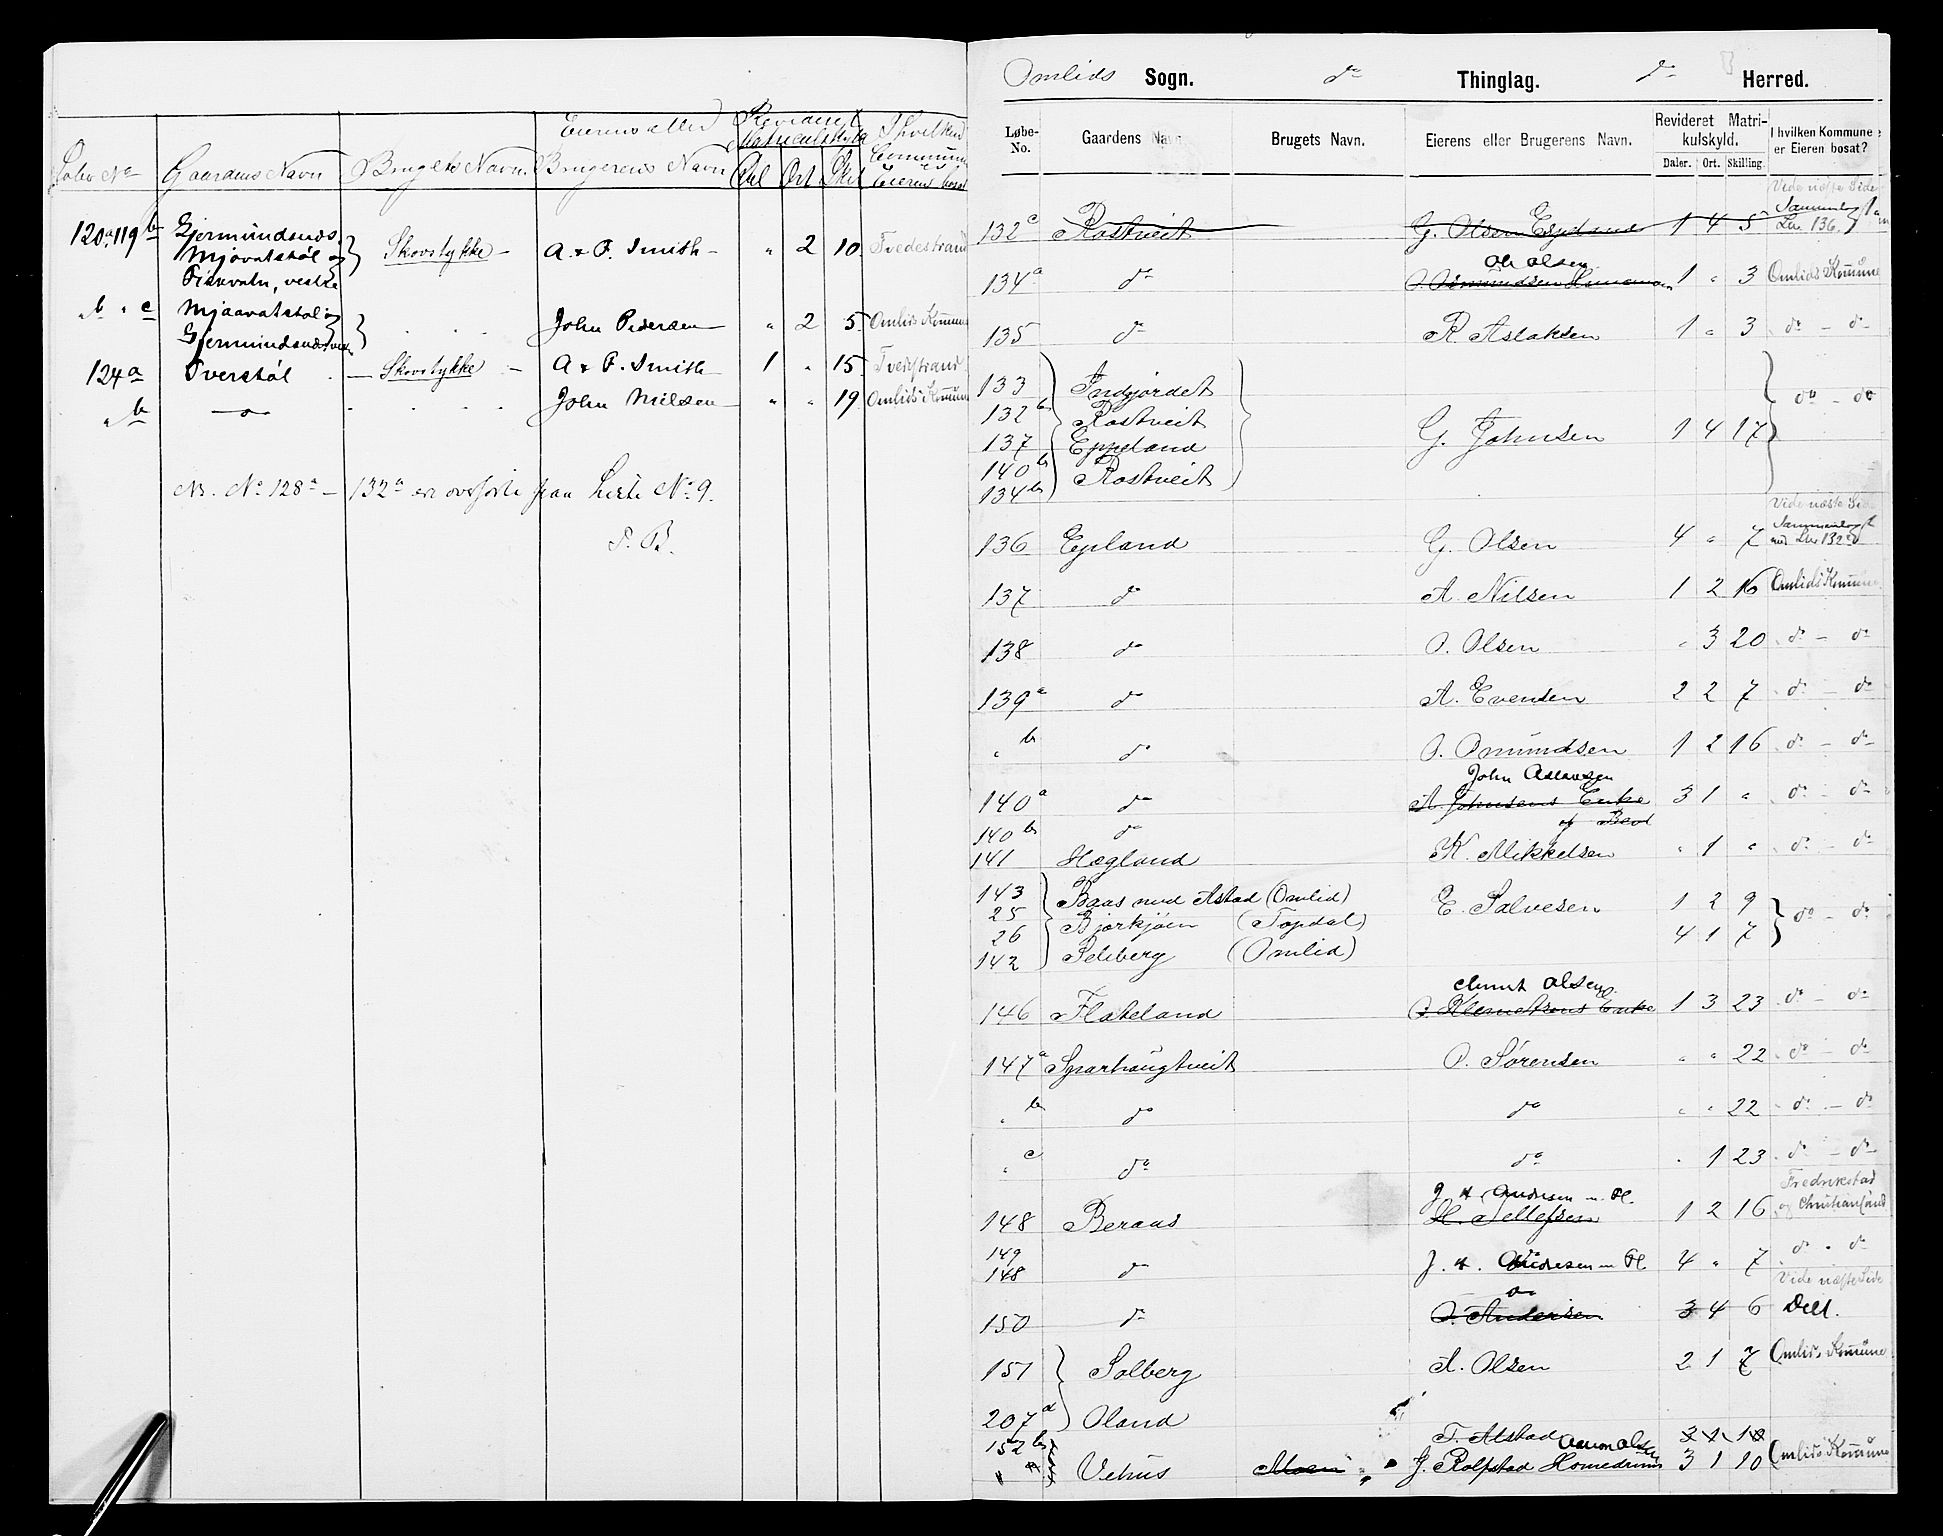 Eierens eller Revideret I hvilken
Løbe No Gaardens Navn Brugets Navn. Brugerens Navn Matriculskyld Commune er
Dal Ort Skil Eieren bosat
120a, 119b Gjermundsnds
Mjovatstøl og } Skovstykke - A. & P. Smith - " 2 10. Tvedestrand
Fiskvatn, vestre
" b " c Mjaavatstøl og
Gjermundsnds } . . . John Pedersen - " 2 5. Omlids Kommune
124a Tverstøl . - Skovstykke - A & P. Smith - 1 " 15. Tvedestrand
" b -"- . . . . John Nilsen - " " 19. Omlids Kommune
NB. No 128a - 132a ere overførte fra Liste No 9.
P. B.
Omlids Sogn. do Thinglag. do Herred.
Løbe-No. Gaardens Navn. Brugets Navn. Eierens eller Brugerens Navn. Revideret Matrikulskyld. I hvilken Kommune er Eieren bosat?
Daler. Ort. Skilling.
Vide næste Side
132c Rostveit G. Olsen Egeland 1 4 5 Sammenlagt Lbn 136.
Ole Olsen
134a do 1 " 3 Omlids Kommune
135 do R. Aslaksen 1 " 3 do - do
133 Indgjordet
132b Rostveit do - do
137 Eppeland G. Johnsen 1 4 17
140b Rostveit
134b
Vide næste Side
136 Epland G. Olsen 4 " 7 Sammenlagt med Lbn 132c
137 do A. Nilsen 1 2 16 Omlids Kommune
138 do O. Olsen " 3 20 do - do
139a do A. Evensen 2 2 7 do - do
" b do O. Omundsen 1 2 16 do - do
John Aslaksen
140a do A. Johnsens Enke 3 1 " do - do
140b do
141 Hægland K. Mikkelsen " 1 " do - do
143 Baas med Alstad (Omlid) E. Salvesen 1 2 9
25 Bjørkjøen (Topdal) do - do
26 4 1 7
142 Seleberg (Omlid)
Olsen
146 Flateland O. Klemetsens Enke 1 3 23 do - do
147a Sparhaugtveit O. Sørensen " " 22 do - do
" b do do " " 22 do - do
" c do do " 1 23 do - do
Fredrikstad
148 Beraas H. Tellefsen 1 2 16 og Christiansand
149
148 do 4 " 7 do - do
Vide næste Side
150 do O. Andersen 3 4 6 Delt.
151 Solberg A. Olsen 2 1 7 Omlids Kommune
207d Oland
152b T. Alstad Aamon Olsen 2 1 18
Vehus Moen J. Rolfstad Homedrum 3 1 10 Omlids Kommune